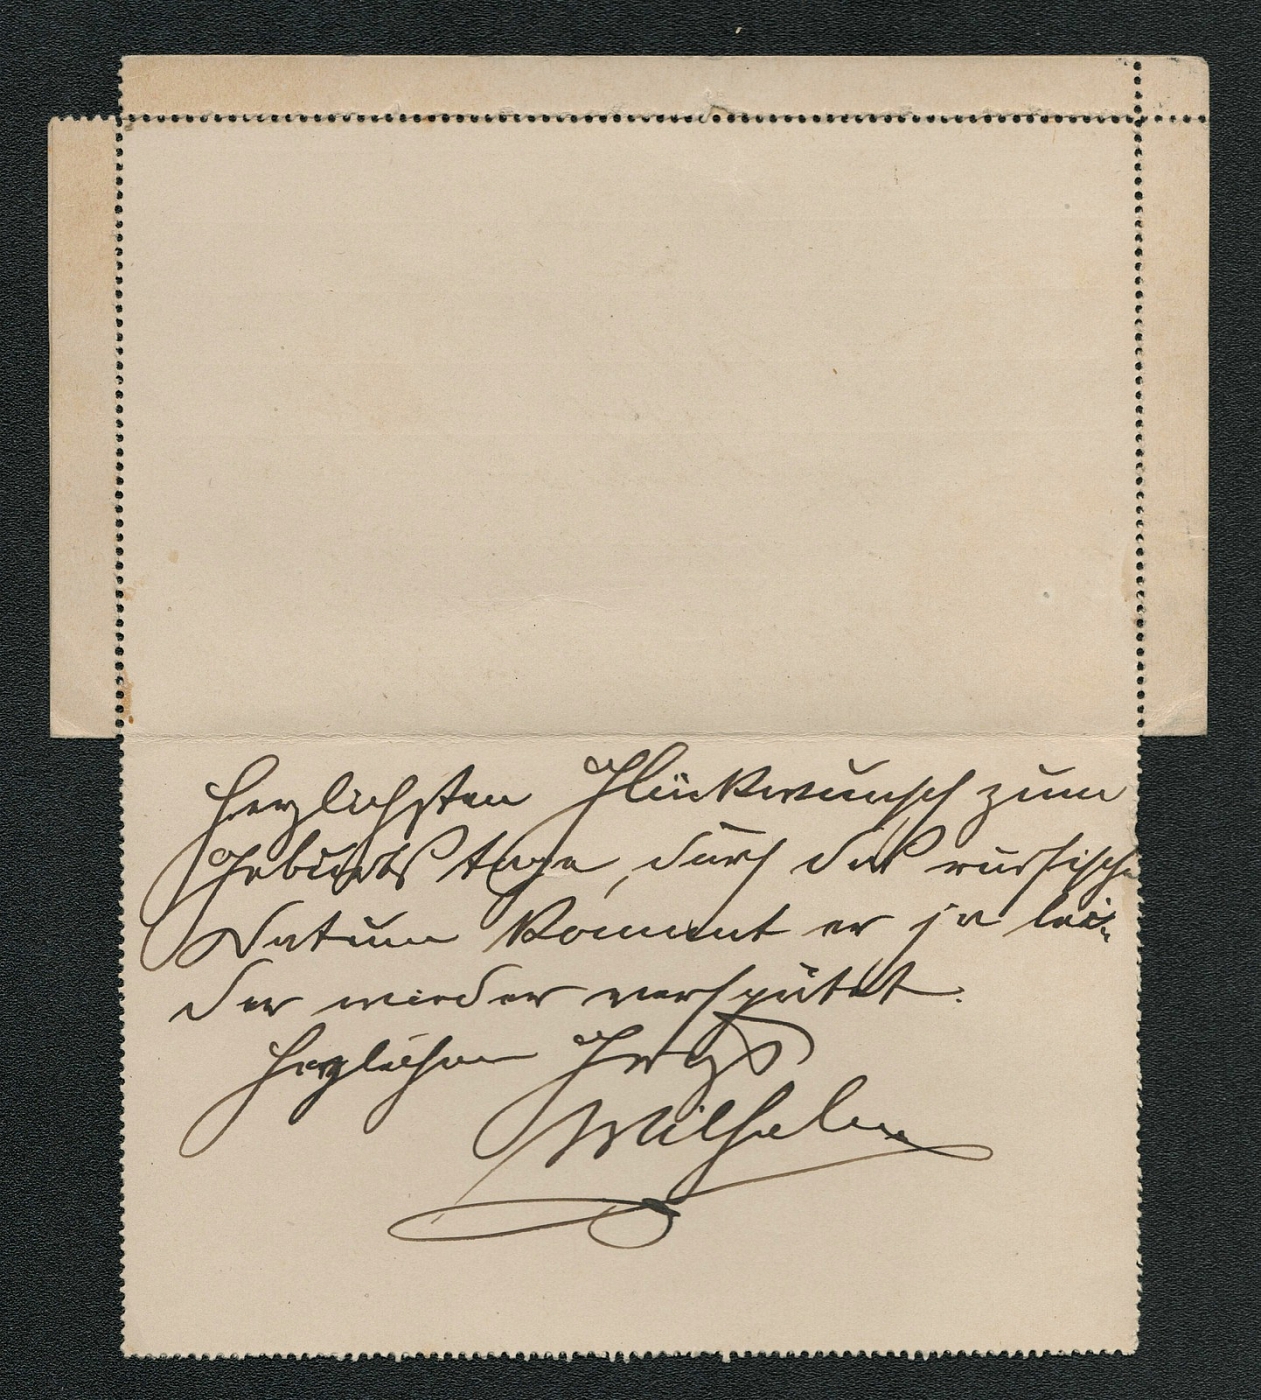 Herzlichsten Glückwunsch zum
Geburtstage, durch das russische
Datum kommt er ja lei-
der wieder verspätet.
Herzlichen Gruß
Wilhelm